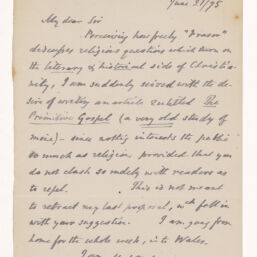 June 21/75
My dear Sir
Perceiving how freely "Fraser"
discusses religious questions which turn on
the literary & historical side of Christia-
nity, I am suddenly seized with the de-
sire of writing an article entitled The
Primitive Gospel (a very old study of
mine) – since nothing interests the public
so much as religion provided that you
do not clash so rudely with readers as
to repel. This is not meant
to retract my last proposal, wch fell in
with your suggestion. I am going from
home for the whole week, into Wales.
I am